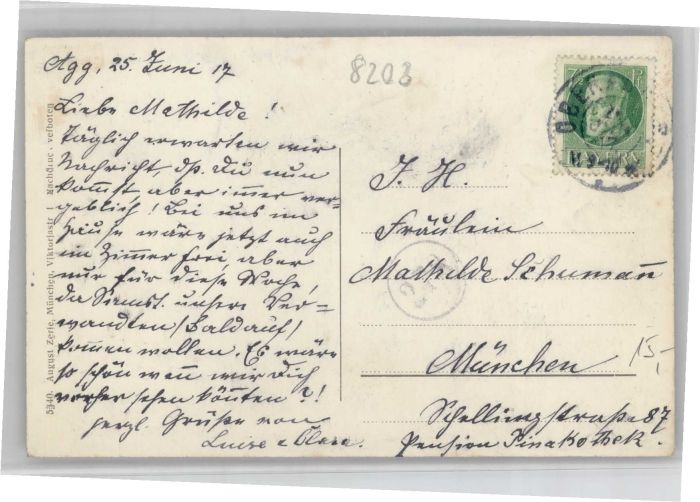 Agg, 25. Juni 17
8203
Liebe Mathilde!
Täglich erwarten wir
Nachricht, dß. Du nun
kommst aber immer ver=
geblich! Bei uns im
Hause wäre jetzt auch
im Zimmer frei, aber
nur für diese Woche,
da Samst. unsere Ver=
wandten (Baldauf)
kommen wollen. Es wäre
so schön wenn wir Dich
vorher sehen könnten?!
herzl. Grüße von
Luise u Clara.
OBER
I. H.
Fräulein
Mathilde Schumann
München
15,-
Schellingstraße 87
Pension Pinakothek.
5340. August Zerle, München, Viktoriastr. Nachdruck verboten